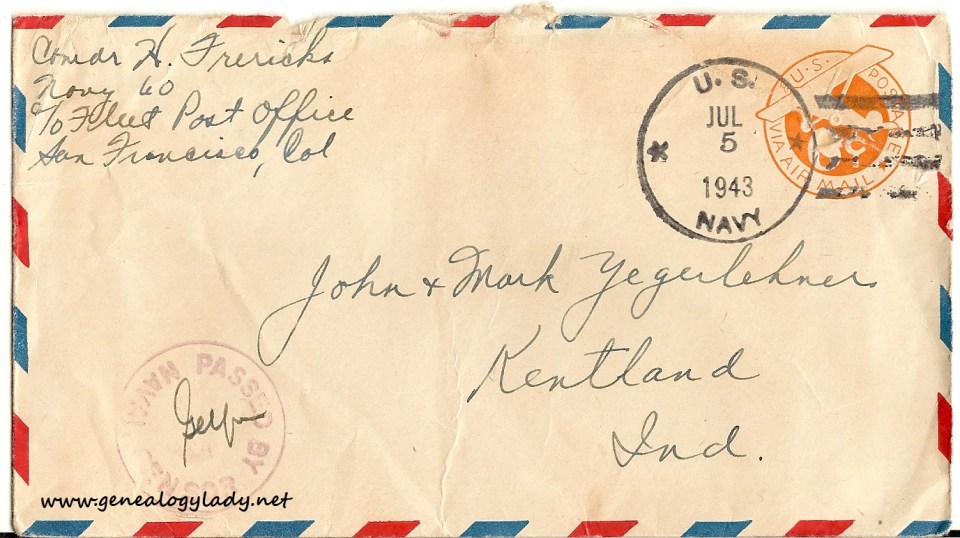 Comdr H. Frericks
Navy 60
c/o Fleet Post Office
San Francisco, Cal
U.S.
JUL
5
1943
NAVY
U.S. POSTAGE
VIA AIR MAIL
John & Mark Yegerlehner
Kentland
Ind.
PASSED BY
NAVAL
www.genealogylady.net